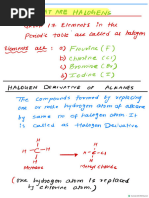 WHAT ARE HALOGENS
Group 17 Elements in the
Periodic table are called as halogen
Elements are :
a) Fluorine (F)
b) Chlorine (Cl)
c) Bromine (Br)
d) Iodine (I)
HALOGEN DERIVATIVE OF ALKANES
The compounds formed by replacing
one or more hydrogen atom of alkane
by same no of halogen atom It
is called as Halogen Derivative
H
H
H - C - H
H - C - Cl
H
H
(One Hydrogen atom is replaced
by chlorine atom)